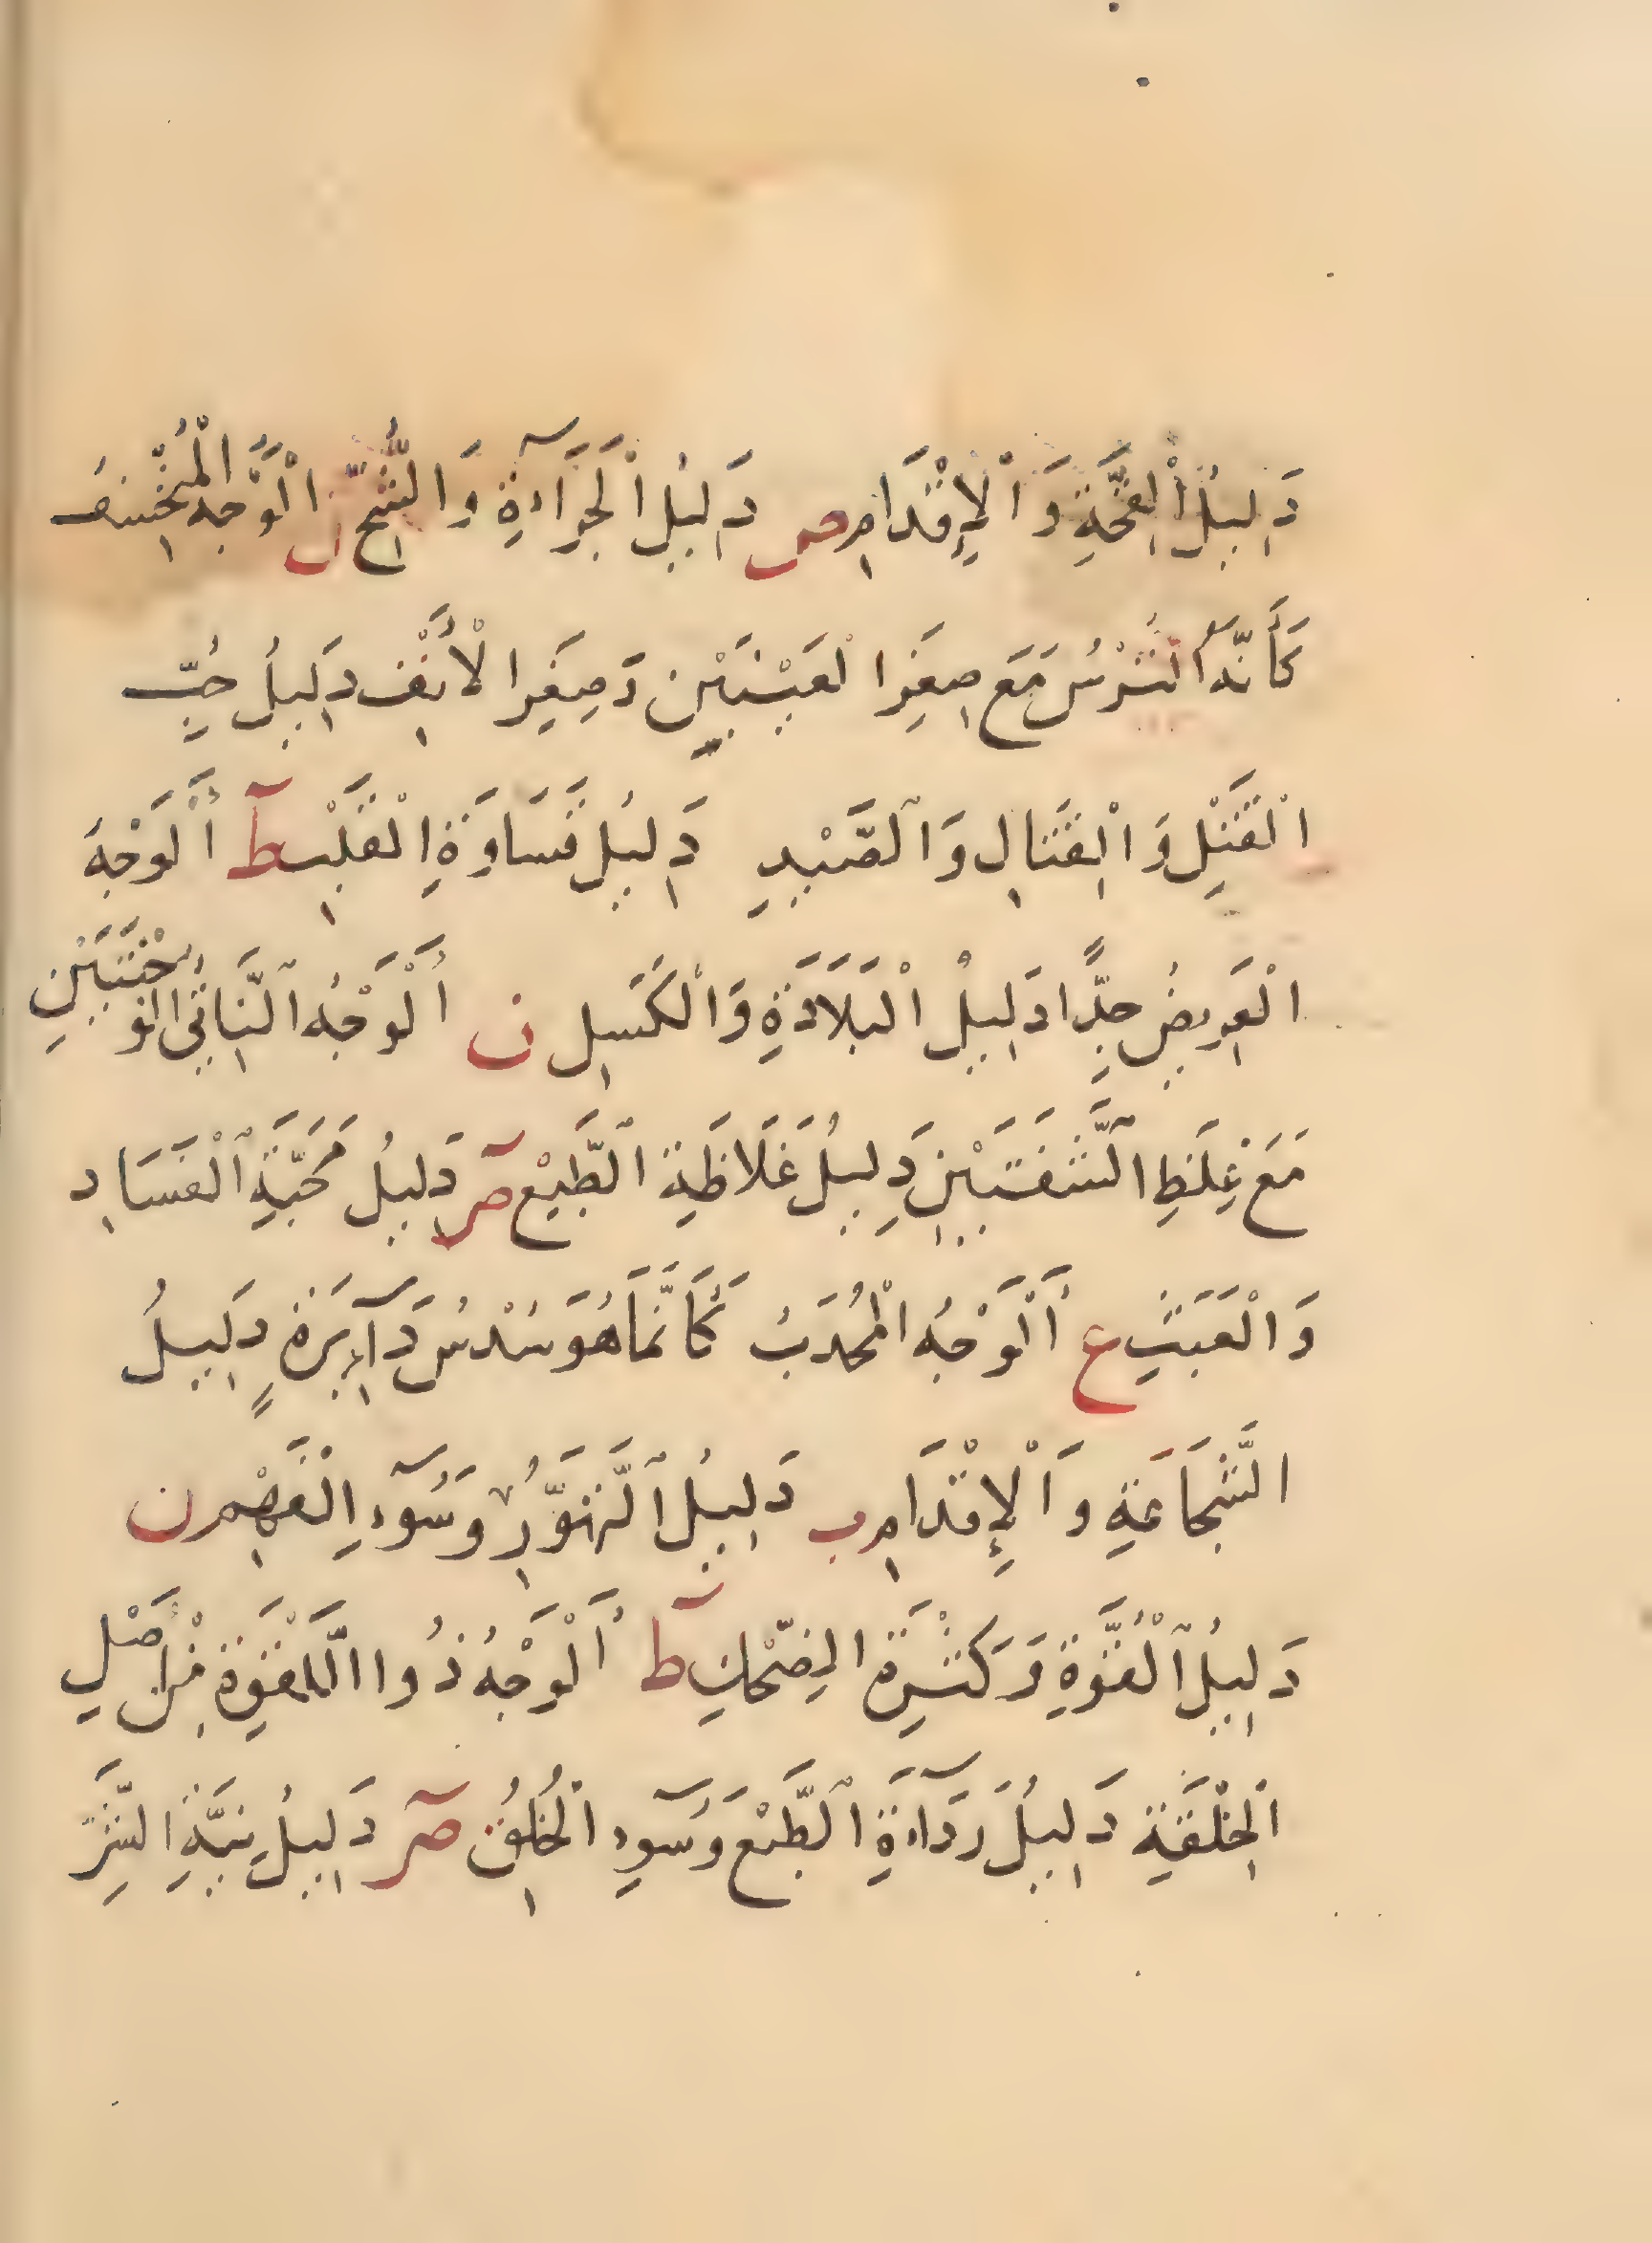 دَلِيلُ الْقِحَّةِ وَالْإِقْدَامِ ص دَلِيلُ الْجَرَآءَةِ وَالشُّحِّ ن الْوَجْهُ الْمُنْخَسِفُ
كَأَنَّهُ التُّرْسُ مَعَ صِغَرِ الْعَيْنَيْنِ وَصِغَرِ الْأَنْفِ دَلِيلُ حُبِّ
الْقَتْلِ وَالْقِتَالِ وَالصَّيْدِ دَلِيلُ قَسَاوَةِ الْقَلْبِ ط أَلْوَجْهُ
الْعَرِيضُ جِدًّا دَلِيلُ الْبَلَادَةِ وَالْكَسَلِ ن أَلْوَجْهُ النَّاتِئُ الْوَجْنَتَيْنِ
مَعَ غِلَظِ الشَّفَتَيْنِ دَلِيلُ غَلَاظَةِ الطَّبْعِ ص دَلِيلُ مَحَبَّةِ الْفَسَادِ
وَالْعَبَثِ ع أَلْوَجْهُ الْمُحَدَّبُ كَأَنَّمَا هُوَ سُدْسُ دَآئِرَةٍ دَلِيلُ
الشَّجَاعَةِ وَالْإِقْدَامِ ب دَلِيلُ التَّهَوُّرِ وَسُوٓءِ الْفَهْمِ ن
دَلِيلُ الْقُوَّةِ وَكَثْرَةِ الضِّحْكِ ط أَلْوَجْهُ ذُوا اللَّقْوَةِ مِنْ أَصْلِ
الْخِلْقَةِ دَلِيلُ رَدَآءَةِ الطَّبْعِ وَسُوٓءِ الْخُلُقِ ص دَلِيلُ نِيَّةِ الشَّرِّ